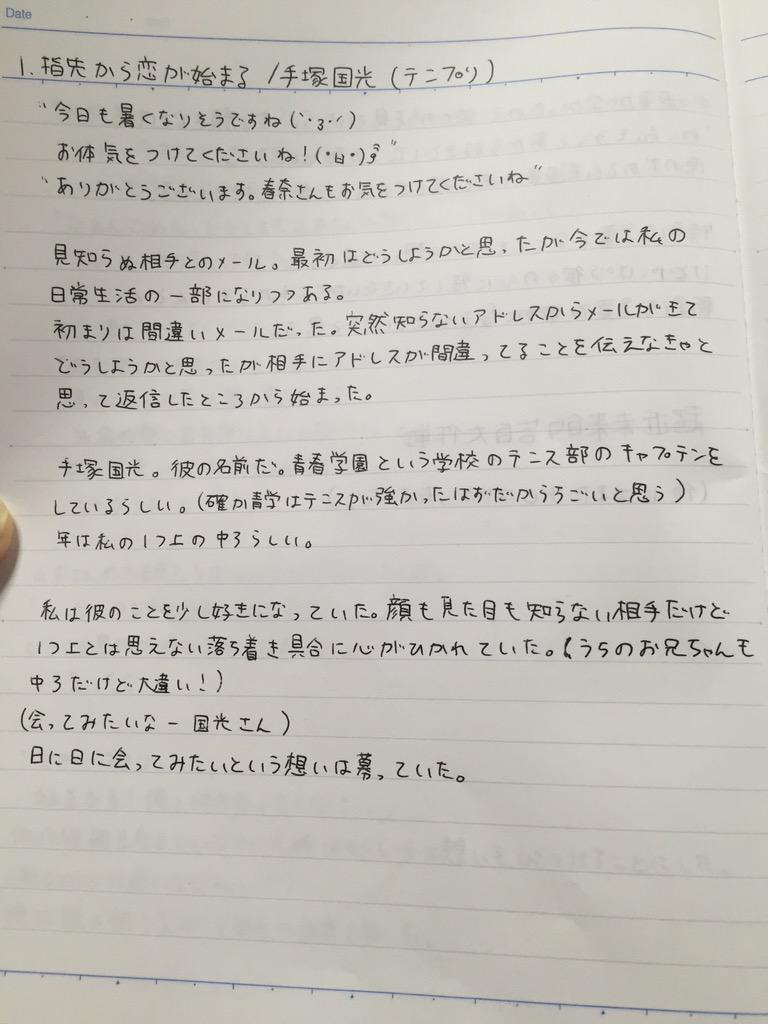 Date
1. 指先から恋が始まる /手塚国光 (テニプリ)
"今日も暑くなりそうですね(´･3･`)
お体気をつけてくださいね!(･ㅂ･)و"
"ありがとうございます。春奈さんもお気をつけてくださいね"
見知らぬ相手とのメール。最初はどうしようかと思ったが今では私の
日常生活の一部になりつつある。
初まりは間違いメールだった。突然知らないアドレスからメールがきて
どうしようかと思ったが相手にアドレスが間違ってることを伝えなきゃと
思って返信したところから始まった。
手塚国光。彼の名前だ。青春学園という学校のテニス部のキャプテンを
しているらしい。(確か青学はテニスが強かったはずだからすごいと思う)
年は私の1つ上の中3らしい。
私は彼のことを少し好きになっていた。顔も見た目も知らない相手だけど
1つ上とは思えない落ち着き具合に心がひかれていた。(うちのお兄ちゃんも
中3だけど大違い!)
(会ってみたいなー国光さん)
日に日に会ってみたいという想いは募っていた。